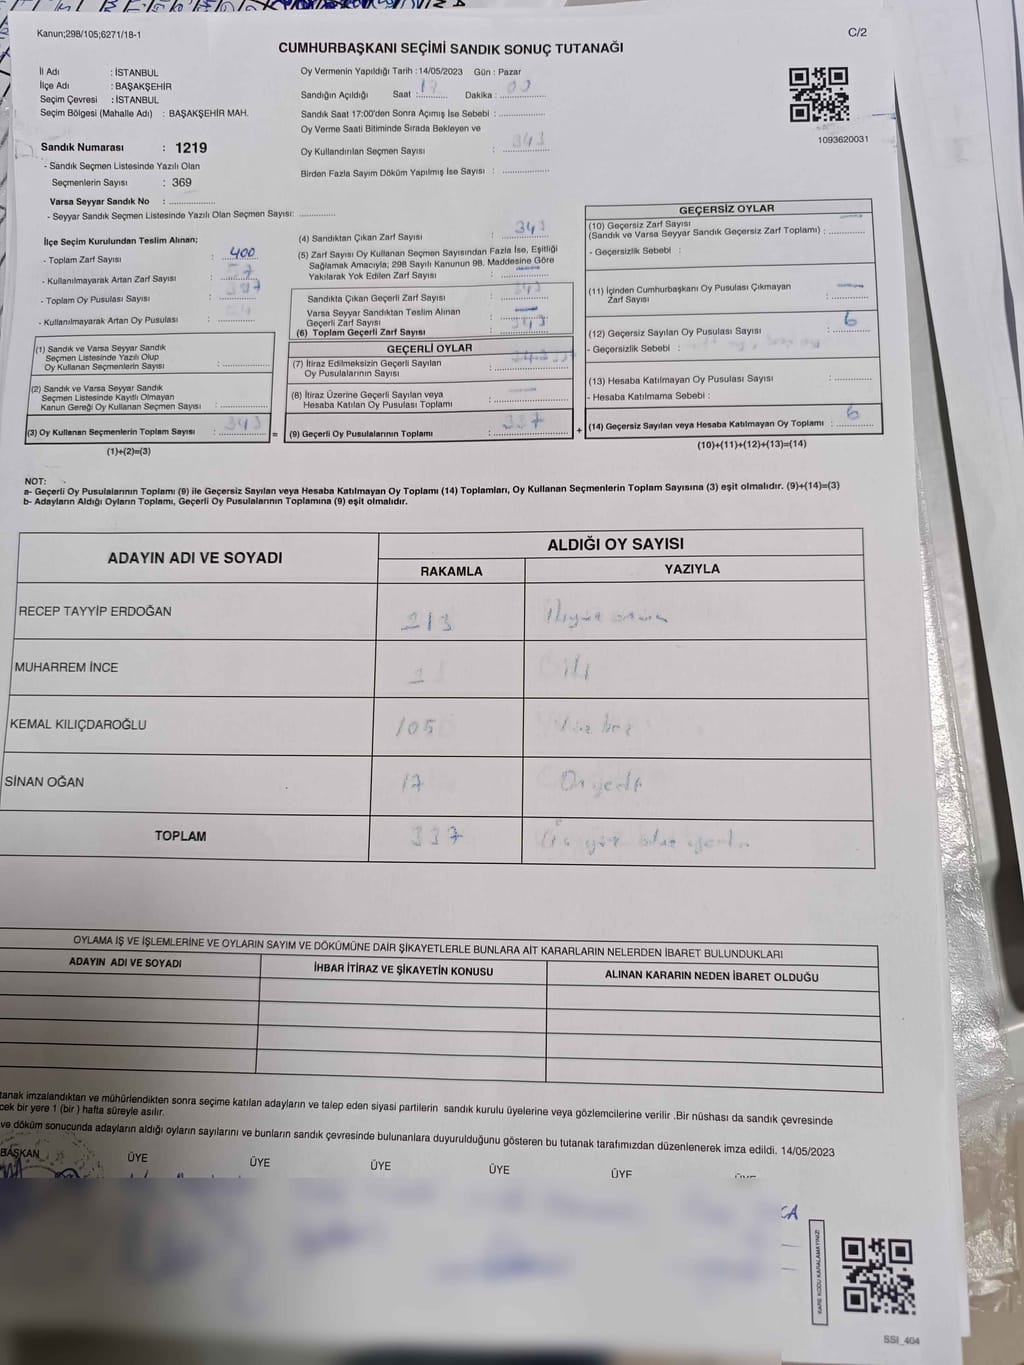 Kanun;298/105;6271/18-1
C/2
CUMHURBAŞKANI SEÇİMİ SANDIK SONUÇ TUTANAĞI
İl Adı : İSTANBUL
İlçe Adı : BAŞAKŞEHİR
Seçim Çevresi : İSTANBUL
Seçim Bölgesi (Mahalle Adı) : BAŞAKŞEHİR MAH.
Sandık Numarası : 1219
- Sandık Seçmen Listesinde Yazılı Olan
Seçmenlerin Sayısı : 369
Varsa Seyyar Sandık No :
- Seyyar Sandık Seçmen Listesinde Yazılı Olan Seçmen Sayısı:
Oy Vermenin Yapıldığı Tarih : 14/05/2023 Gün : Pazar
Sandığın Açıldığı Saat : 17 Dakika : 00
Sandık Saat 17:00'den Sonra Açımış İse Sebebi :
Oy Verme Saati Bitiminde Sırada Bekleyen ve
Oy Kullandırılan Seçmen Sayısı : 343
Birden Fazla Sayım Döküm Yapılmış İse Sayısı :
1093620031
İlçe Seçim Kurulundan Teslim Alınan;
- Toplam Zarf Sayısı : 400
- Kullanılmayarak Artan Zarf Sayısı : 57
- Toplam Oy Pusulası Sayısı : 397
- Kullanılmayarak Artan Oy Pusulası :
(1) Sandık ve Varsa Seyyar Sandık
Seçmen Listesinde Yazılı Olup
Oy Kullanan Seçmenlerin Sayısı :
(2) Sandık ve Varsa Seyyar Sandık
Seçmen Listesinde Kayıtlı Olmayan
Kanun Gereği Oy Kullanan Seçmen Sayısı :
(3) Oy Kullanan Seçmenlerin Toplam Sayısı : 343
(1)+(2)=(3)
(4) Sandıktan Çıkan Zarf Sayısı : 343
(5) Zarf Sayısı Oy Kullanan Seçmen Sayısından Fazla İse, Eşitliği
Sağlamak Amacıyla; 298 Sayılı Kanunun 98. Maddesine Göre
Yakılarak Yok Edilen Zarf Sayısı :
Sandıkta Çıkan Geçerli Zarf Sayısı : 343
Varsa Seyyar Sandıktan Teslim Alınan
Geçerli Zarf Sayısı :
(6) Toplam Geçerli Zarf Sayısı : 343
GEÇERLİ OYLAR
(7) İtiraz Edilmeksizin Geçerli Sayılan
Oy Pusulalarının Sayısı : 337
(8) İtiraz Üzerine Geçerli Sayılan veya
Hesaba Katılan Oy Pusulası Toplamı :
= (9) Geçerli Oy Pusulalarının Toplamı : 337
GEÇERSİZ OYLAR
(10) Geçersiz Zarf Sayısı
(Sandık ve Varsa Seyyar Sandık Geçersiz Zarf Toplamı) :
- Geçersizlik Sebebi :
(11) İçinden Cumhurbaşkanı Oy Pusulası Çıkmayan
Zarf Sayısı :
(12) Geçersiz Sayılan Oy Pusulası Sayısı : 6
- Geçersizlik Sebebi :
(13) Hesaba Katılmayan Oy Pusulası Sayısı :
- Hesaba Katılmama Sebebi :
+ (14) Geçersiz Sayılan veya Hesaba Katılmayan Oy Toplamı : 6
(10)+(11)+(12)+(13)=(14)
NOT:
a- Geçerli Oy Pusulalarının Toplamı (9) ile Geçersiz Sayılan veya Hesaba Katılmayan Oy Toplamı (14) Toplamları, Oy Kullanan Seçmenlerin Toplam Sayısına (3) eşit olmalıdır. (9)+(14)=(3)
b- Adayların Aldığı Oyların Toplamı, Geçerli Oy Pusulalarının Toplamına (9) eşit olmalıdır.
ADAYIN ADI VE SOYADI
ALDIĞI OY SAYISI
RAKAMLA YAZIYLA
RECEP TAYYİP ERDOĞAN 213
MUHARREM İNCE 2
KEMAL KILIÇDAROĞLU 105 Yüz beş
SİNAN OĞAN 17 On yedi
TOPLAM 337 Üç yüz otuz yedi
OYLAMA İŞ VE İŞLEMLERİNE VE OYLARIN SAYIM VE DÖKÜMÜNE DAİR ŞİKAYETLERLE BUNLARA AİT KARARLARIN NELERDEN İBARET BULUNDUKLARI
ADAYIN ADI VE SOYADI İHBAR İTİRAZ VE ŞİKAYETİN KONUSU ALINAN KARARIN NEDEN İBARET OLDUĞU
tanak imzalandıktan ve mühürlendikten sonra seçime katılan adayların ve talep eden siyasi partilerin sandık kurulu üyelerine veya gözlemcilerine verilir .Bir nüshası da sandık çevresinde
cek bir yere 1 (bir ) hafta süreyle asılır.
ve döküm sonucunda adayların aldığı oyların sayılarını ve bunların sandık çevresinde bulunanlara duyurulduğunu gösteren bu tutanak tarafımızdan düzenlenerek imza edildi. 14/05/2023
BAŞKAN ÜYE ÜYE ÜYE ÜYE ÜYE
KARE KODU KARALAMAYINIZ!
SSI_404